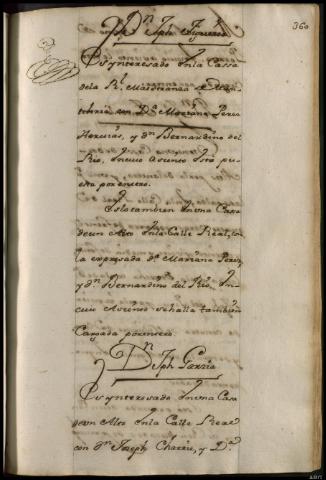 360
Dn Jph Figueredo
Es ynteresado en la Cassa
de la Rl. Maestranza de
con Da. Mariana Perez
y dn Bernardino del
Rio, en cuio asiento está pu-
esta por entero.
Es lo tambien en una Casa
de un Alto en la Calle Real, con
la expresada da. Mariana Perez,
y dn. Bernardino del Rio, en
cuio Asiento se halla tambien
Cargada por entero.
Dn Jph Garzia
Es ynteresado en una Casa
de un Alto en la Calle Real
con dn. Joseph y Da.